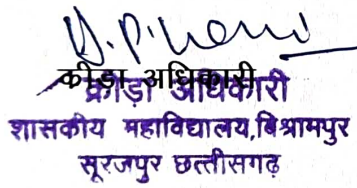 कीड़ा अधिकारी
क्रीड़ा अधिकारी
शासकीय महाविद्यालय,बिश्रामपुर
सूरजपुर छत्तीसगढ़